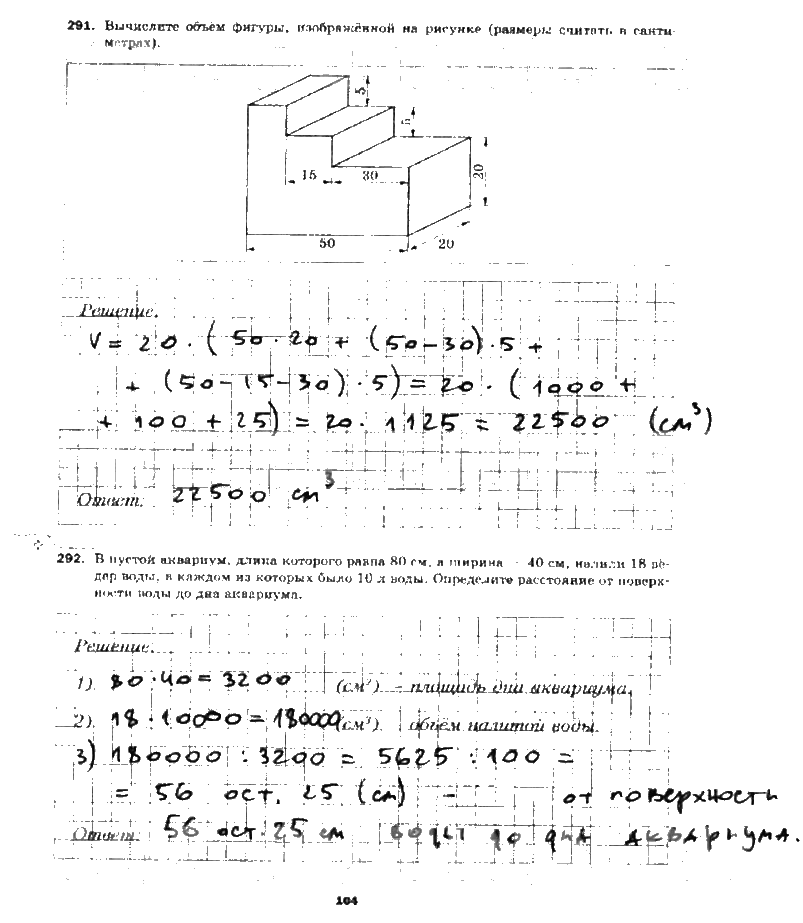 291. Вычислите объём фигуры, изображённой на рисунке (размеры считать в санти-
метрах).
5
5
15 30
20
50
20
Решение.
V = 20 · (50 · 20 + (50 – 30) · 5 +
+ (50 – 15 – 30) · 5) = 20 · (1000 +
+ 100 + 25) = 20 · 1125 = 22500 (см³)
Ответ. 22500 см³
292. В пустой аквариум, длина которого равна 80 см, а ширина – 40 см, налили 18 вё-
дер воды, в каждом из которых было 10 л воды. Определите расстояние от поверх-
ности воды до дна аквариума.
Решение.
1). 80 · 40 = 3200 (см²) – площадь дна аквариума.
2). 18 · 10000 = 180000 (см³) объём налитой воды.
3) 180000 : 3200 = 5625 : 100 =
= 56 ост. 25 (см) – от поверхности
Ответ. 56 ост. 25 см воды до дна аквариума.
104